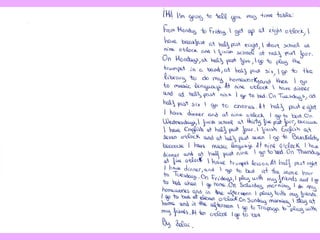 Hi! I'm going to tell you my time table:
From Monday to Friday, I get up at eight o'clock, I
have breakfast at half past eight, I start school at
nine o'clock and I finish school at half past four.
On Mondays, at half past five, I go to play the
trumpet in a band, at half past six, I go to the
library to do my homeworks and then I go
to music language. At nine o'clock I have dinner
and at half past nine I go to bed. On Tuesdays, at
half past six I go to chorus. At half past eight
I have dinner and at nine o'clock I go to bed. On
Wednesdays, I finish school at thirty five past four, because
I have English at half past four. I finish English at
seven o'clock and at half past seven I go to
because I have music language. At nine o'clock I have
dinner and at half past nine I go to bed. On Thursdays
at five o'clock I have trumpet lesson. At half past eight
I have dinner, and I go to bed at the same hour
to Tuesday. On Fridays, I play with my friends and I go
to bed when I go home. On Saturday morning, I do my
homeworks and in the afternoon I play with my friends.
I go to bed at eleven o'clock. On Sunday morning, I stay at
home and in the afternoon I go to to play with
my friends. At ten o'clock I go to bed.
By